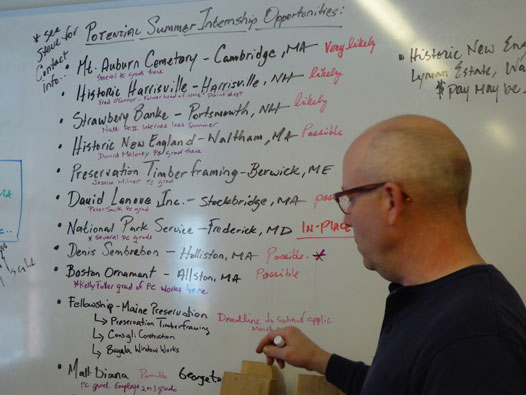 * see
Steve for
Contact
Info.
Potential Summer Internship Opportunities:
• Mt. Auburn Cemetery - Cambridge, MA Very likely
Several PC grads here
• Historic Harrisville - Harrisville, NH likely
Fred O'Connor - Former head of
• Strawbery Banke - Portsmouth, NH likely
last summer
• Historic New England - Waltham, MA Possible
David Maloney PC grad there
• Preservation Timberframing - Berwick, ME
PC grad
• David Lanoue Inc. - Stockbridge, MA
Peter Smith PC grad
• National Park Service - Frederick, MD IN-PLACE
* Several PC grads
• Denis Sembration - Holliston, MA Possible. *
• Boston Ornament - Allston, MA Possible
* Kelly Fuller grad of PC works here
• Fellowship - Maine Preservation
Deadline to submit applic
↳ Preservation Timberframing
↳ Consigli Construction
↳ Bagala Window Works
• Matt Diana Possible Georgeto
PC grad. Employs 2 or 3 grads
• Historic New Eng
Lyman Estate, Wa
$ Pay May be